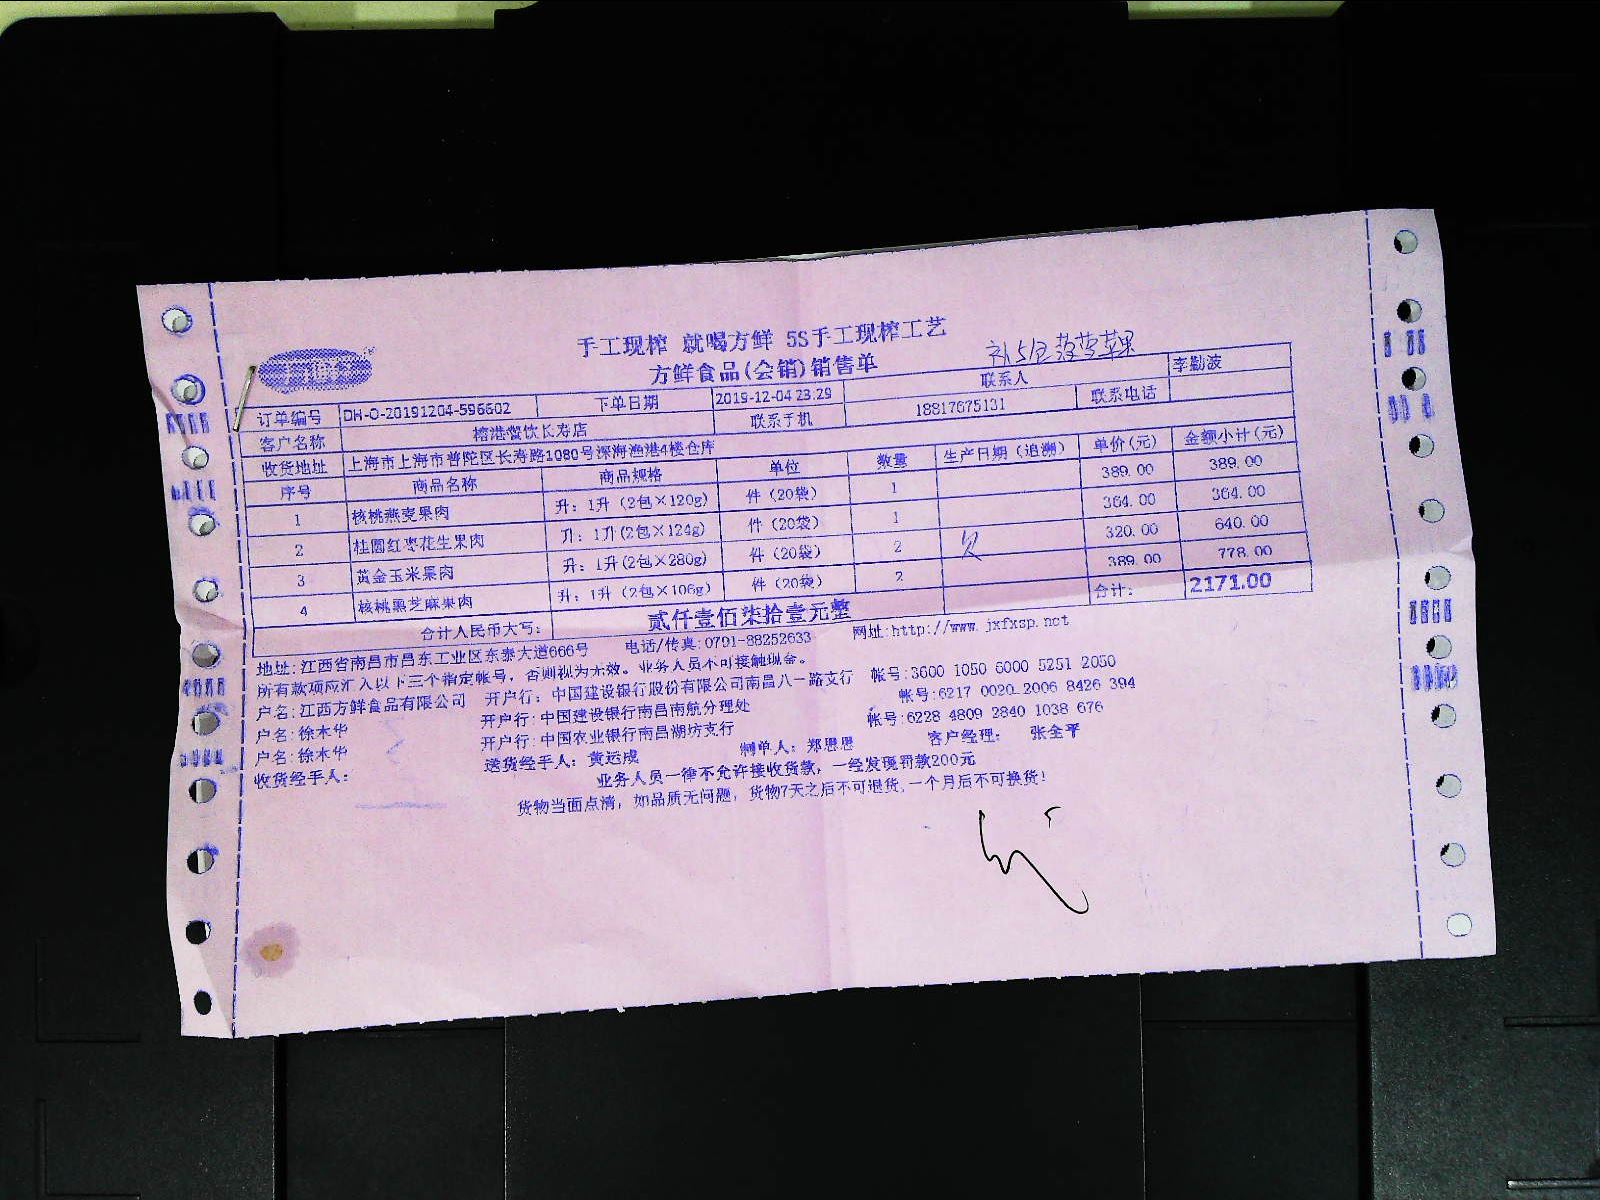 手工现榨 就喝方鲜 5S手工现榨工艺
方鲜食品(会销)销售单
订单编号 DH-O-20191204-596602 下单日期 2019-12-04 23:29 联系人 李勤波
客户名称 榕港餐饮长寿店 联系手机 18817675131 联系电话
收货地址 上海市上海市普陀区长寿路1080号深海渔港4楼仓库
序号 商品名称 商品规格 单位 数量 生产日期（追溯） 单价(元) 金额小计(元)
1 核桃燕麦果肉 升: 1升 (2包×120g) 件 (20袋) 1 389.00 389.00
2 桂圆红枣花生果肉 升: 1升(2包×124g) 件 (20袋) 1 364.00 364.00
3 黄金玉米果肉 升: 1升(2包×280g) 件 (20袋) 2 欠 320.00 640.00
4 核桃黑芝麻果肉 升: 1升 (2包×106g) 件 (20袋) 2 389.00 778.00
合计人民币大写: 贰仟壹佰柒拾壹元整 合计: 2171.00
地址:江西省南昌市昌东工业区东泰大道666号 电话/传真:0791-88252633 网址:http://www.jxfxsp.net
所有款项应汇入以下三个指定帐号，否则视为无效。业务人员不可接触现金。
户名:江西方鲜食品有限公司 开户行: 中国建设银行股份有限公司南昌八一路支行 帐号:3600 1050 6000 5251 2050
户名:徐木华 开户行:中国建设银行南昌南航分理处 帐号:6217 0020 2006 8426 394
户名:徐木华 开户行:中国农业银行南昌湖坊支行 帐号:6228 4809 2840 1038 676
收货经手人: 送货经手人: 黄运成 制单人: 郑思思 客户经理: 张全平
业务人员一律不允许接收货款，一经发现罚款200元
货物当面点清，如品质无问题，货物7天之后不可退货,一个月后不可换货!